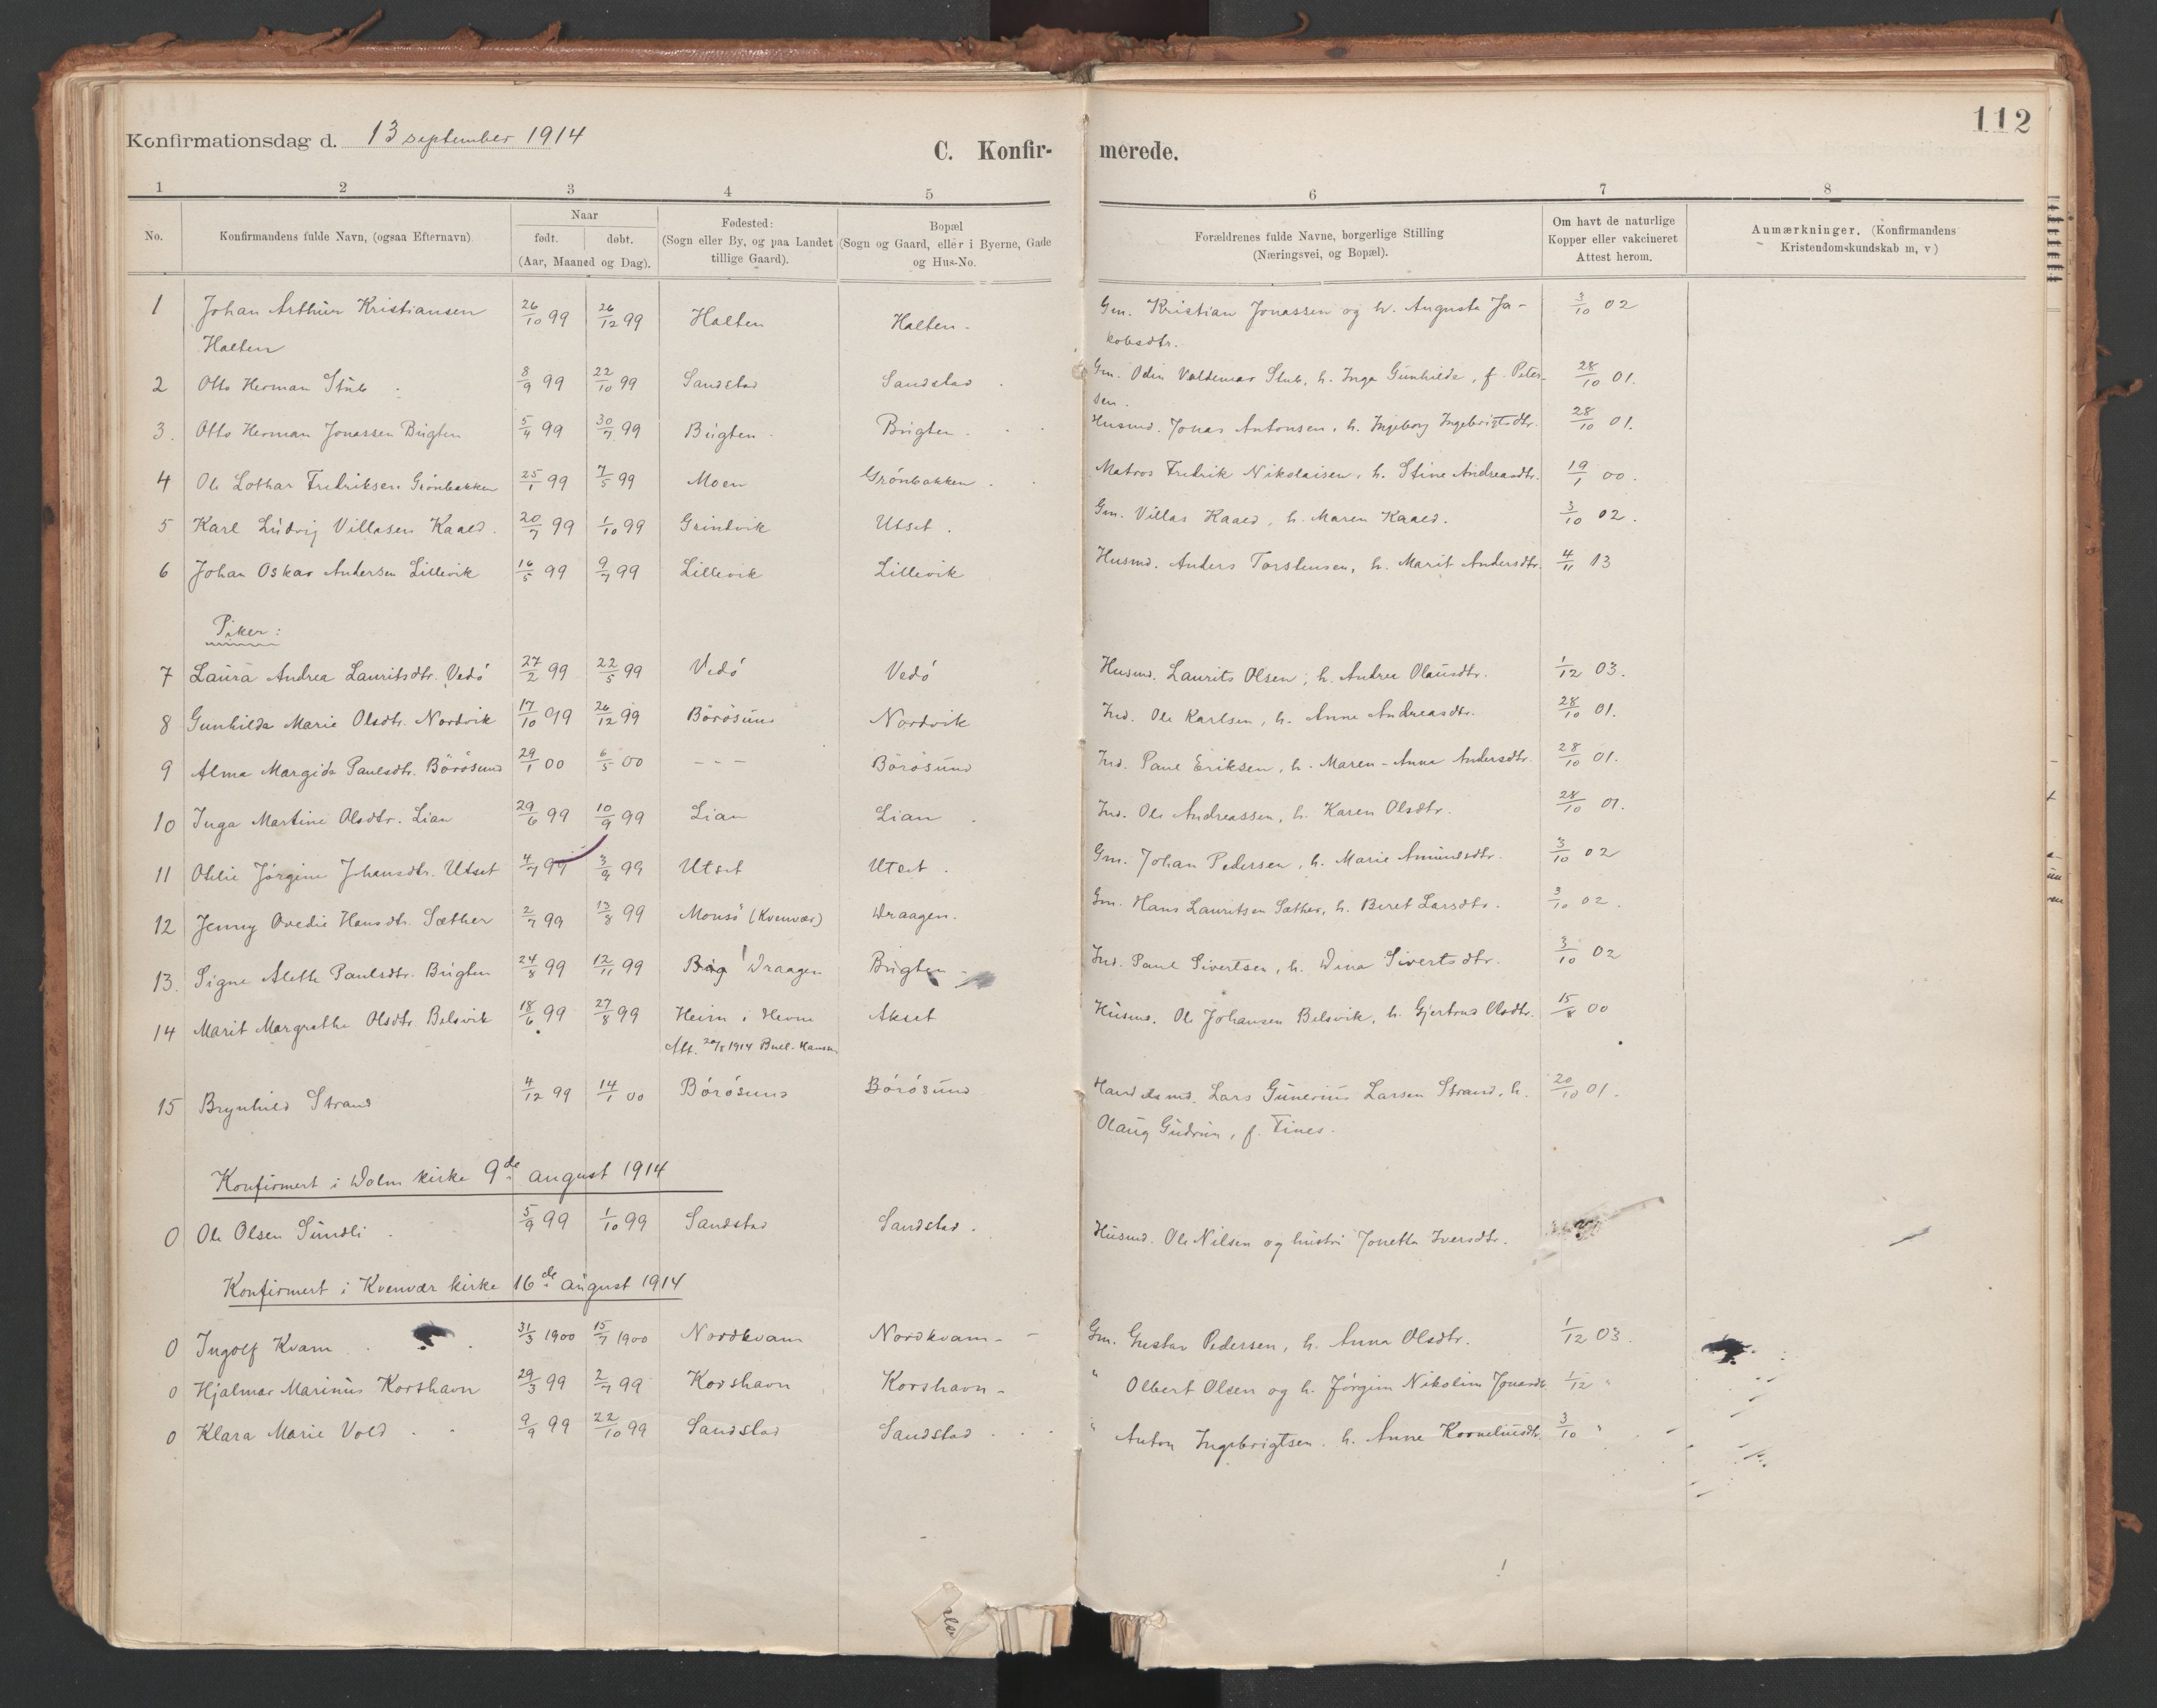 112
Konfirmationsdag d. 13 september 1914
C. Konfir- merede.
1 2 3 4 5 6 7 8
No. Konfirmandens fulde Navn, (ogsaa Efternavn). Naar født. døbt. (Aar, Maaned og Dag). Fødested: (Sogn eller By, og paa Landet tillige Gaard). Bopæl (Sogn og Gaard, eller i Byerne, Gade og Hus-No. Forældrenes fulde Navne, borgerlige Stilling (Næringsvei, og Bopæl). Om havt de naturlige Kopper eller vakcineret Attest herom. Anmærkninger. (Konfirmandens Kristendomskundskab m, v)
1 Johan Arthur Kristiansen 26/10 99 26/12 99 Halten Halten. Gm. Kristian Jonassen og h. Augusta Ja- 3/10 02
Halten kobsdtr.
2 Otto Herman Stub 8/9 99 22/10 99 Sandstad Sandstad Gm. Odin Valdemar Stub, h. Inga Gunhilde, f. Peter- 28/10 01.
sen.
3. Otto Herman Jonassen Bugten 5/4 99 30/7 99 Bugten Bugten. Husmd. Jonas Antonsen, h. Ingeborg Ingebrigtsdtr. 28/10 01.
4 Ole Lothar Fredriksen Grönbakken 25/1 99 7/5 99 Moen Grönbakken. Matros Fredrik Nikolaisen, h. Stine Andreasdtr. 19/1 00.
5 Karl Ludvig Villasen Kaald. 20/7 99 1/10 99 Grindvik Utset. Gm. Villas Kaald, h. Maren Kaald. 3/10 02.
6 Johan Oskar Andersen Lillevik 16/5 99 9/7 99 Lillevik Lillevik Husmd. Anders Torstensen, h. Marit Andersdtr. 4/11 13
Piker:
7 Laura Andrea Lauritsdtr. Vedö 27/2 99 22/5 99 Vedö Vedö Husmd. Laurits Olsen, h. Andrea Olausdtr. 1/12 03.
8 Gunhilda Marie Olsdtr. Nordvik 17/10 99 26/12 99 Börösund Nordvik Ind. Ole Karlsen, h. Anne Andreasdtr. 28/10 01.
9 Alma Margida Paulsdtr. Börösund 29/1 00 6/5 00 - - - Börösund Ind. Paul Eriksen, h. Maren-Anna Andersdtr. 28/10 01.
10 Inga Martine Olsdtr. Lian 29/6 99 10/9 99 Lian Lian Ind. Ole Andreassen, h. Karen Olsdtr. 28/10 01.
11 Otelie Jörgine Johansdtr. Utset 4/7 99 3/9 99 Utset Utset. Gm. Johan Pedersen, h. Marie Amundsdtr. 3/10 02
12 Jenny Ovedie Hansdtr. Sæther 2/7 99 13/8 99 Monsö (Kvenvær) Draagen. Gm. Hans Lauritsen Sæther, h. Beret Larsdtr. 3/10 02.
13. Signe Alette Paulsdtr. Bugten 24/8 99 12/11 99 Draagen Bugten Ind. Paul Sivertsen, h. Dina Sivertsdtr. 3/10 02
14 Marit Margrethe Olsdtr. Belsvik 18/6 99 27/8 99 Heim i Hevne Akset Husmd. Ole Johansen Belsvik, h. Gjertrud Olsdtr. 15/8 00
Att. 20/8 1914 Bull-Hansen
15 Brynhild Strand 4/12 99 14/1 00 Börösund Börösund Handelsmd. Lars Gunerius Larsen Strand, h. 20/10 01.
Olaug Gudrun, f. Fines.
Konfirmert i Dolm kirke 9de august 1914
0 Ole Olsen Sundli 5/9 99 1/10 99 Sandstad Sandstad. Husmd. Ole Nilsen og hustru Jonetta Iversdtr.
Konfirmert i Kvenvær kirke 16de august 1914
0 Ingolf Kvam 31/3 1900 15/7 1900 Nordkvam Nordkvam- Gm. Gustav Pedersen, h. Anna Olsdtr. 1/12 03.
0 Hjalmar Marinus Korshavn 29/3 99 2/7 99 Korshavn Korshavn- " Olbert Olsen og h. Jörgine Nikoline Jonasdt. 1/12 "
0 Klara Marie Vold 9/9 99 22/10 99 Sandstad Sandstad " Anton Ingebrigtsen. h. Anne Korneliusdtr. 3/10 "